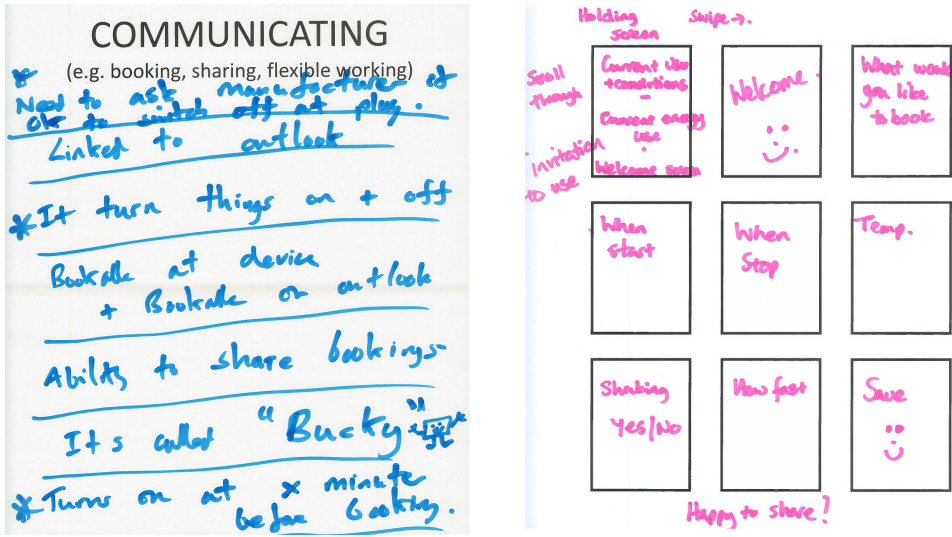 COMMUNICATING
(e.g. booking, sharing, flexible working)
* Need to ask manufacturer if
ok to switch off at plug.
Linked to outlook
* It turn things on + off
Bookable at device
+ Bookable on outlook
Ability to share bookings
It's called "Bucky"
* Turns on at x minute
before booking.
Holding
screen
Swipe →.
Scroll
through
invitation
to use
Current user
+ conditions
Current energy
use
Welcome screen
Welcome.
What would
you like
to book
When
start
When
Stop
Temp.
Shaking
Yes/No
How fast
Save
Happy to share?